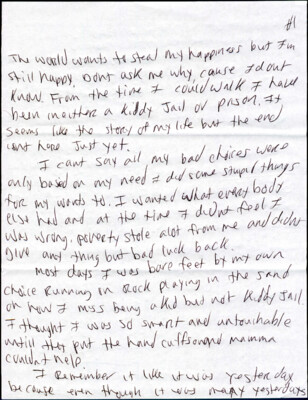 #1
The world wants to steal my happiness but I'm
still happy. Dont ask me why, cause I dont
know. From the time I could walk I have
been in either a kiddy Jail or prison. It
seems like the story of my life but the end
isnt here Just yet.
I cant say all my bad choices were
only based on my need I did some stupid things
for my wants to. I wanted what everybody
else had and at the time I didnt feel I
was wrong. poverty stole alot from me and didnt
give any thing but bad luck back.
most days I was bare feet by my own
choice Running on Rock playing in the sand
oh how I miss being a kid but not kiddy Jail
I thought I was so smart and untouchable
untill they put the hand cuffs on and mamma
couldnt help.
I Remember it like it was yesterday
because even though it was many yesterdays